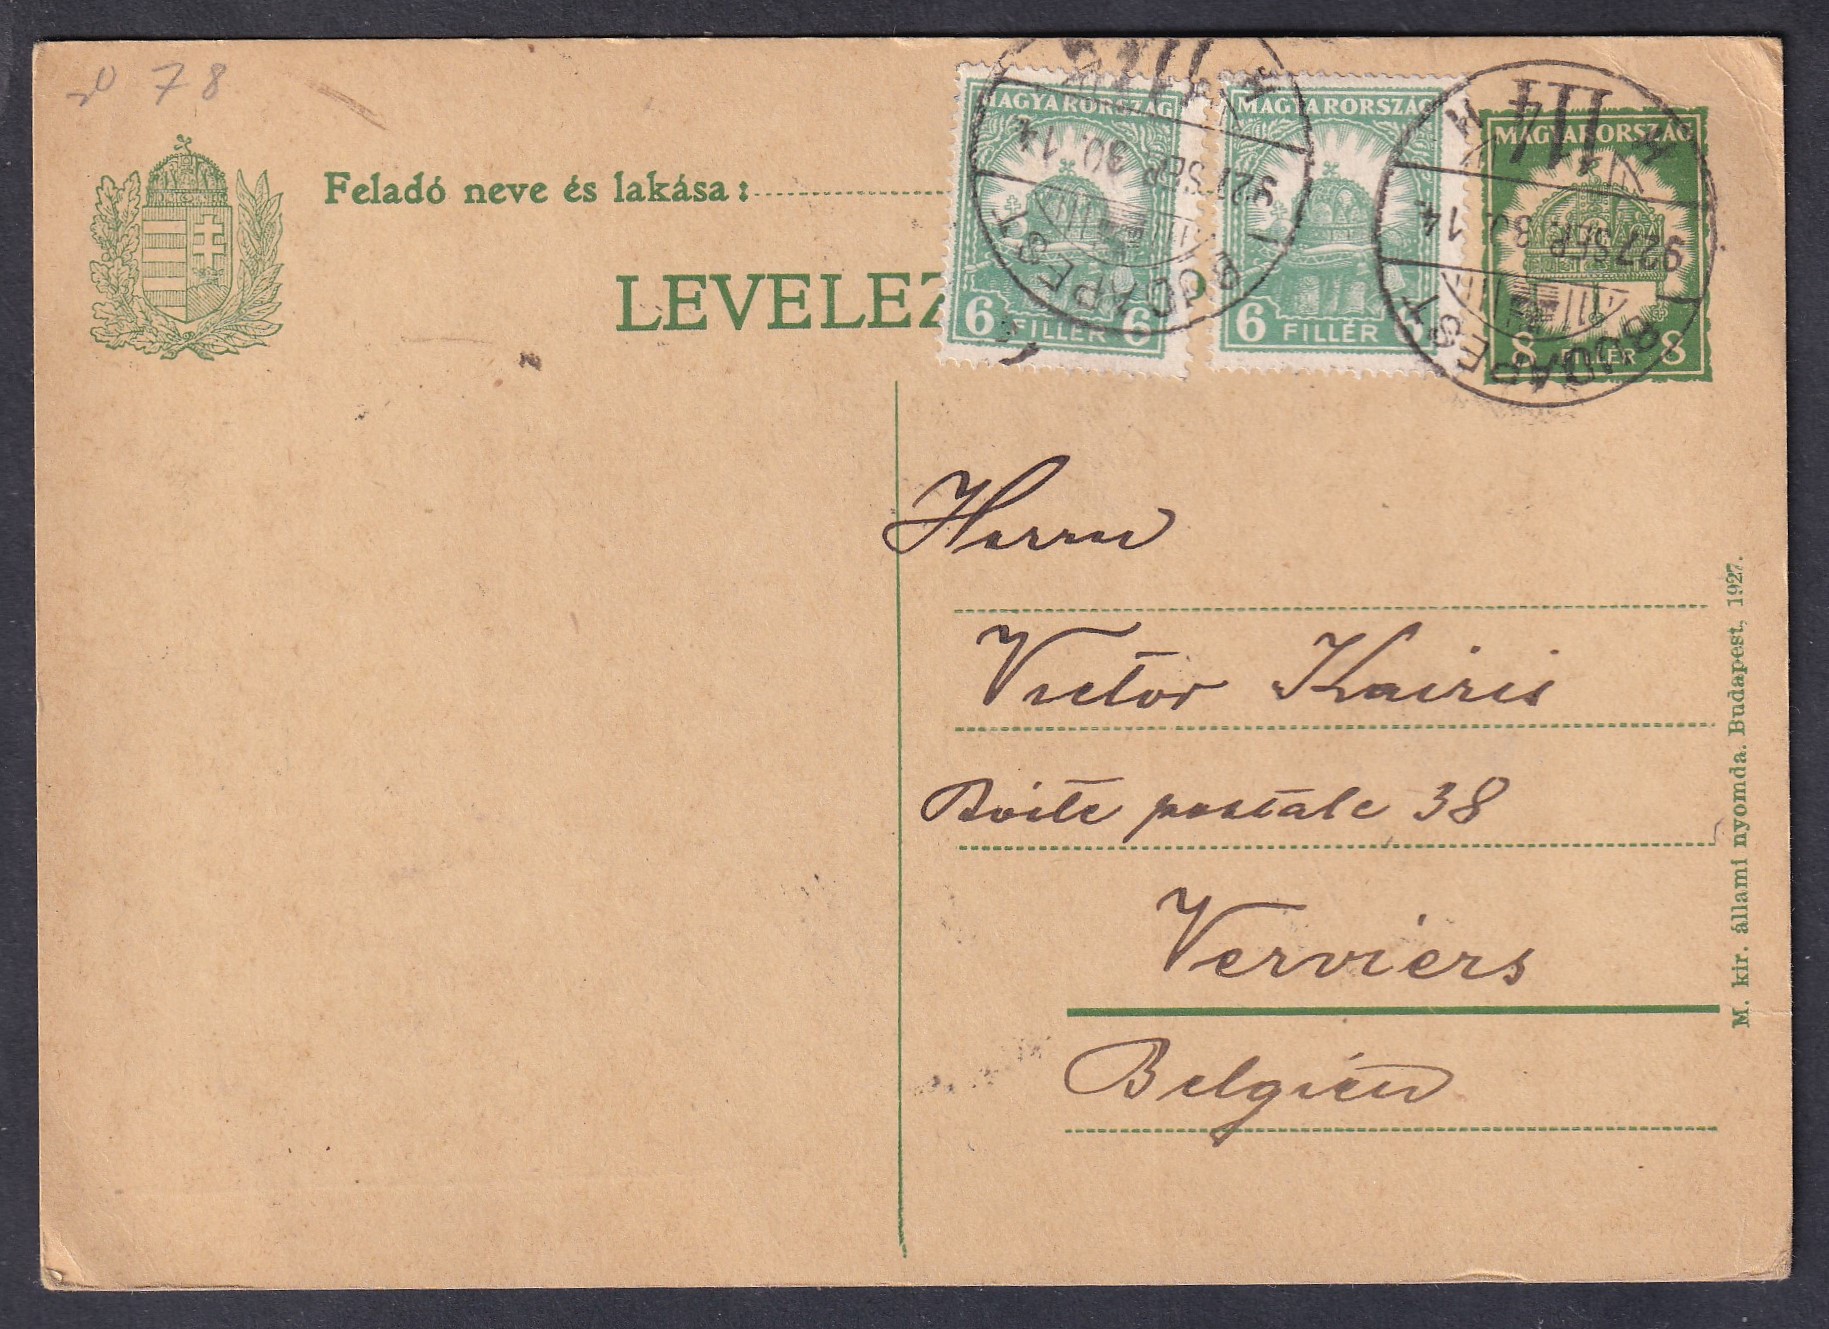 78
Feladó neve és lakása:
LEVELEZ
MAGYARORSZÁG
6 FILLÉR 6
MAGYARORSZÁG
6 FILLÉR 6
MAGYARORSZÁG
8 FILLÉR 8
BUDAPEST
927 SEP. 30. 14
BUDAPEST
927 SEP. 30. 14
Herrn
Victor Kairis
Boite postale 38
Verviers
Belgien
M. kir. állami nyomda. Budapest, 1927.